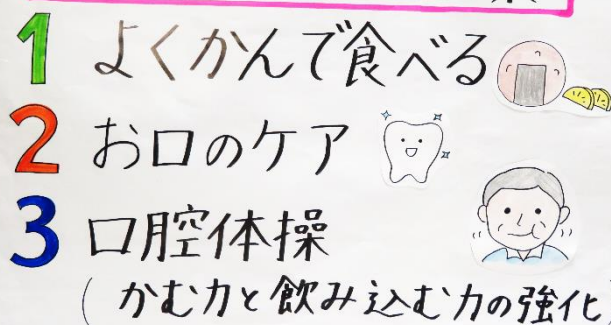 1 よくかんで食べる
2 お口のケア
3 口腔体操
(かむ力と飲み込む力の強化)